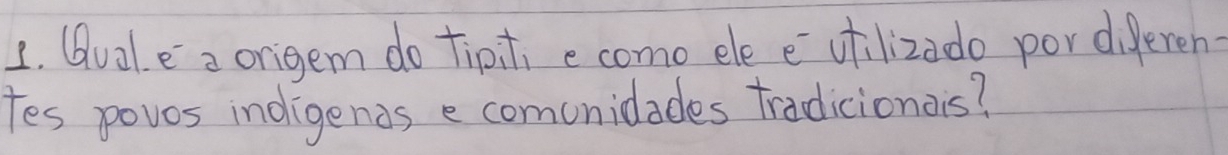 1. Qual é a origem do Tipiti e como ele é utilizado por diferen-
tes povos indígenas e comunidades tradicionais?